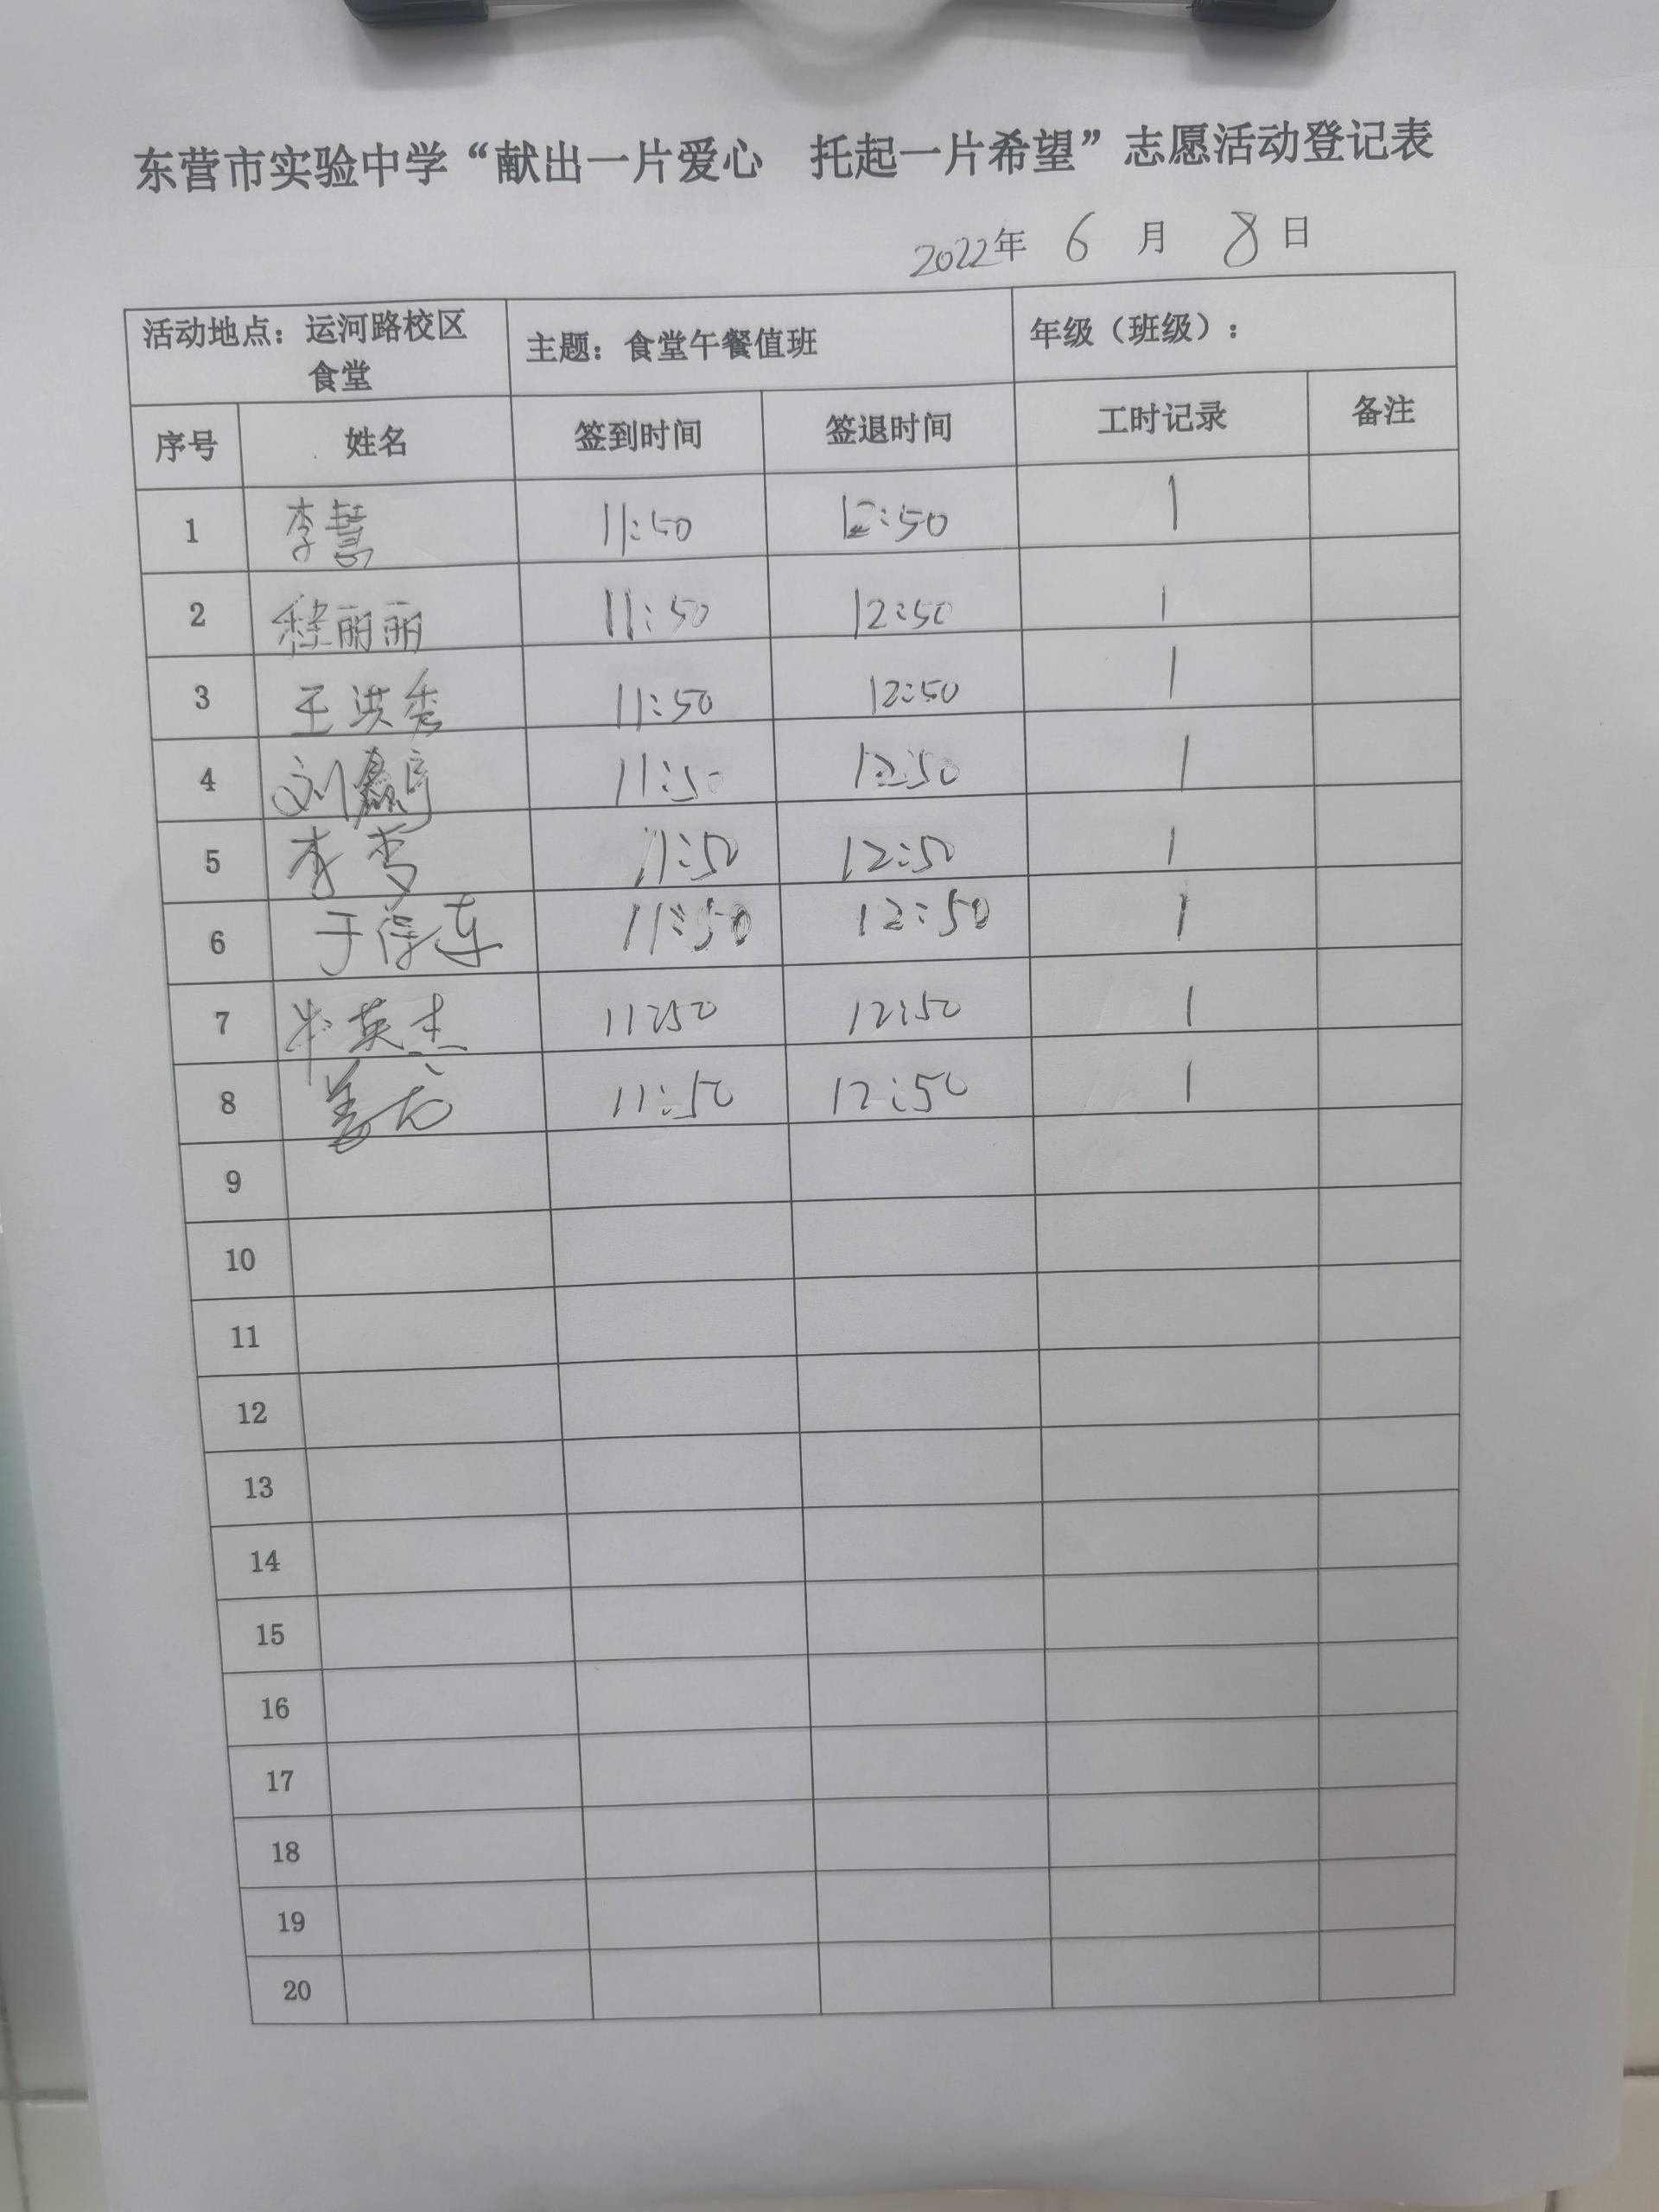 东营市实验中学“献出一片爱心 托起一片希望”志愿活动登记表
2022年 6 月 8 日
活动地点：运河路校区 主题：食堂午餐值班 年级（班级）：
食堂
序号 姓名 签到时间 签退时间 工时记录 备注
1 李慧 11:50 12:50 1
2 程丽丽 11:50 12:50 1
3 王洪秀 11:50 12:50 1
4 刘 11:50 12:50 1
5 李雪 11:50 12:50 1
6 于 11:50 12:50 1
7 牟英杰 11:50 12:50 1
8 姜 11:50 12:50 1
9
10
11
12
13
14
15
16
17
18
19
20